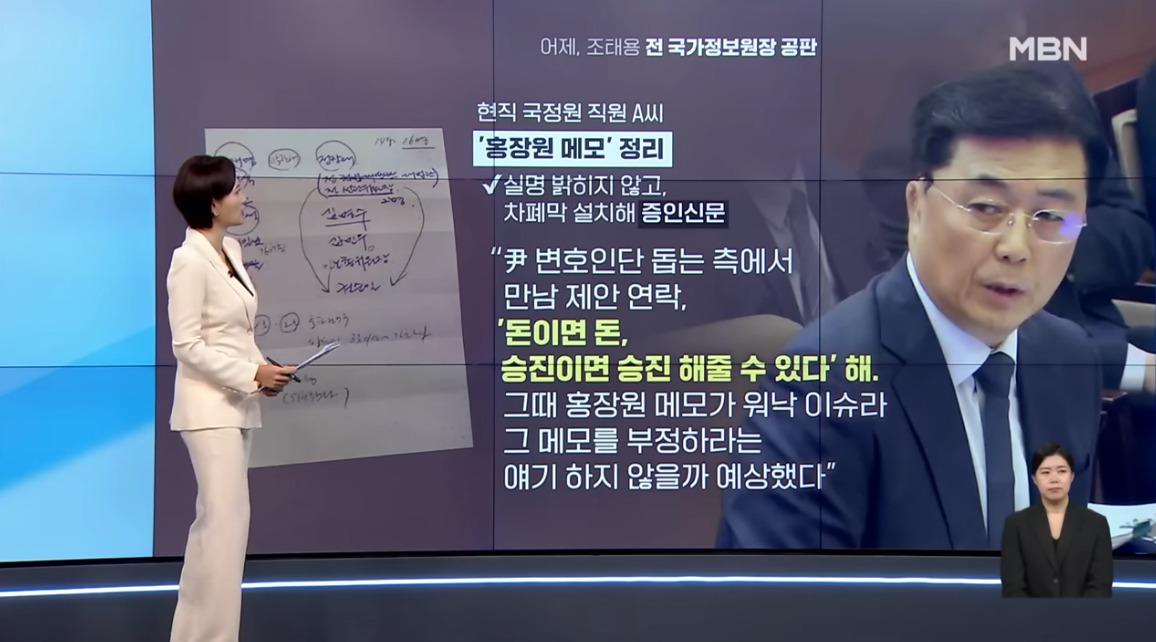 어제, 조태용 전 국가정보원장 공판
MBN
현직 국정원 직원 A씨
'홍장원 메모' 정리
✓실명 밝히지 않고,
차폐막 설치해 증인신문
“尹 변호인단 돕는 측에서
만남 제안 연락,
'돈이면 돈,
승진이면 승진 해줄 수 있다' 해.
그때 홍장원 메모가 워낙 이슈라
그 메모를 부정하라는
얘기 하지 않을까 예상했다”